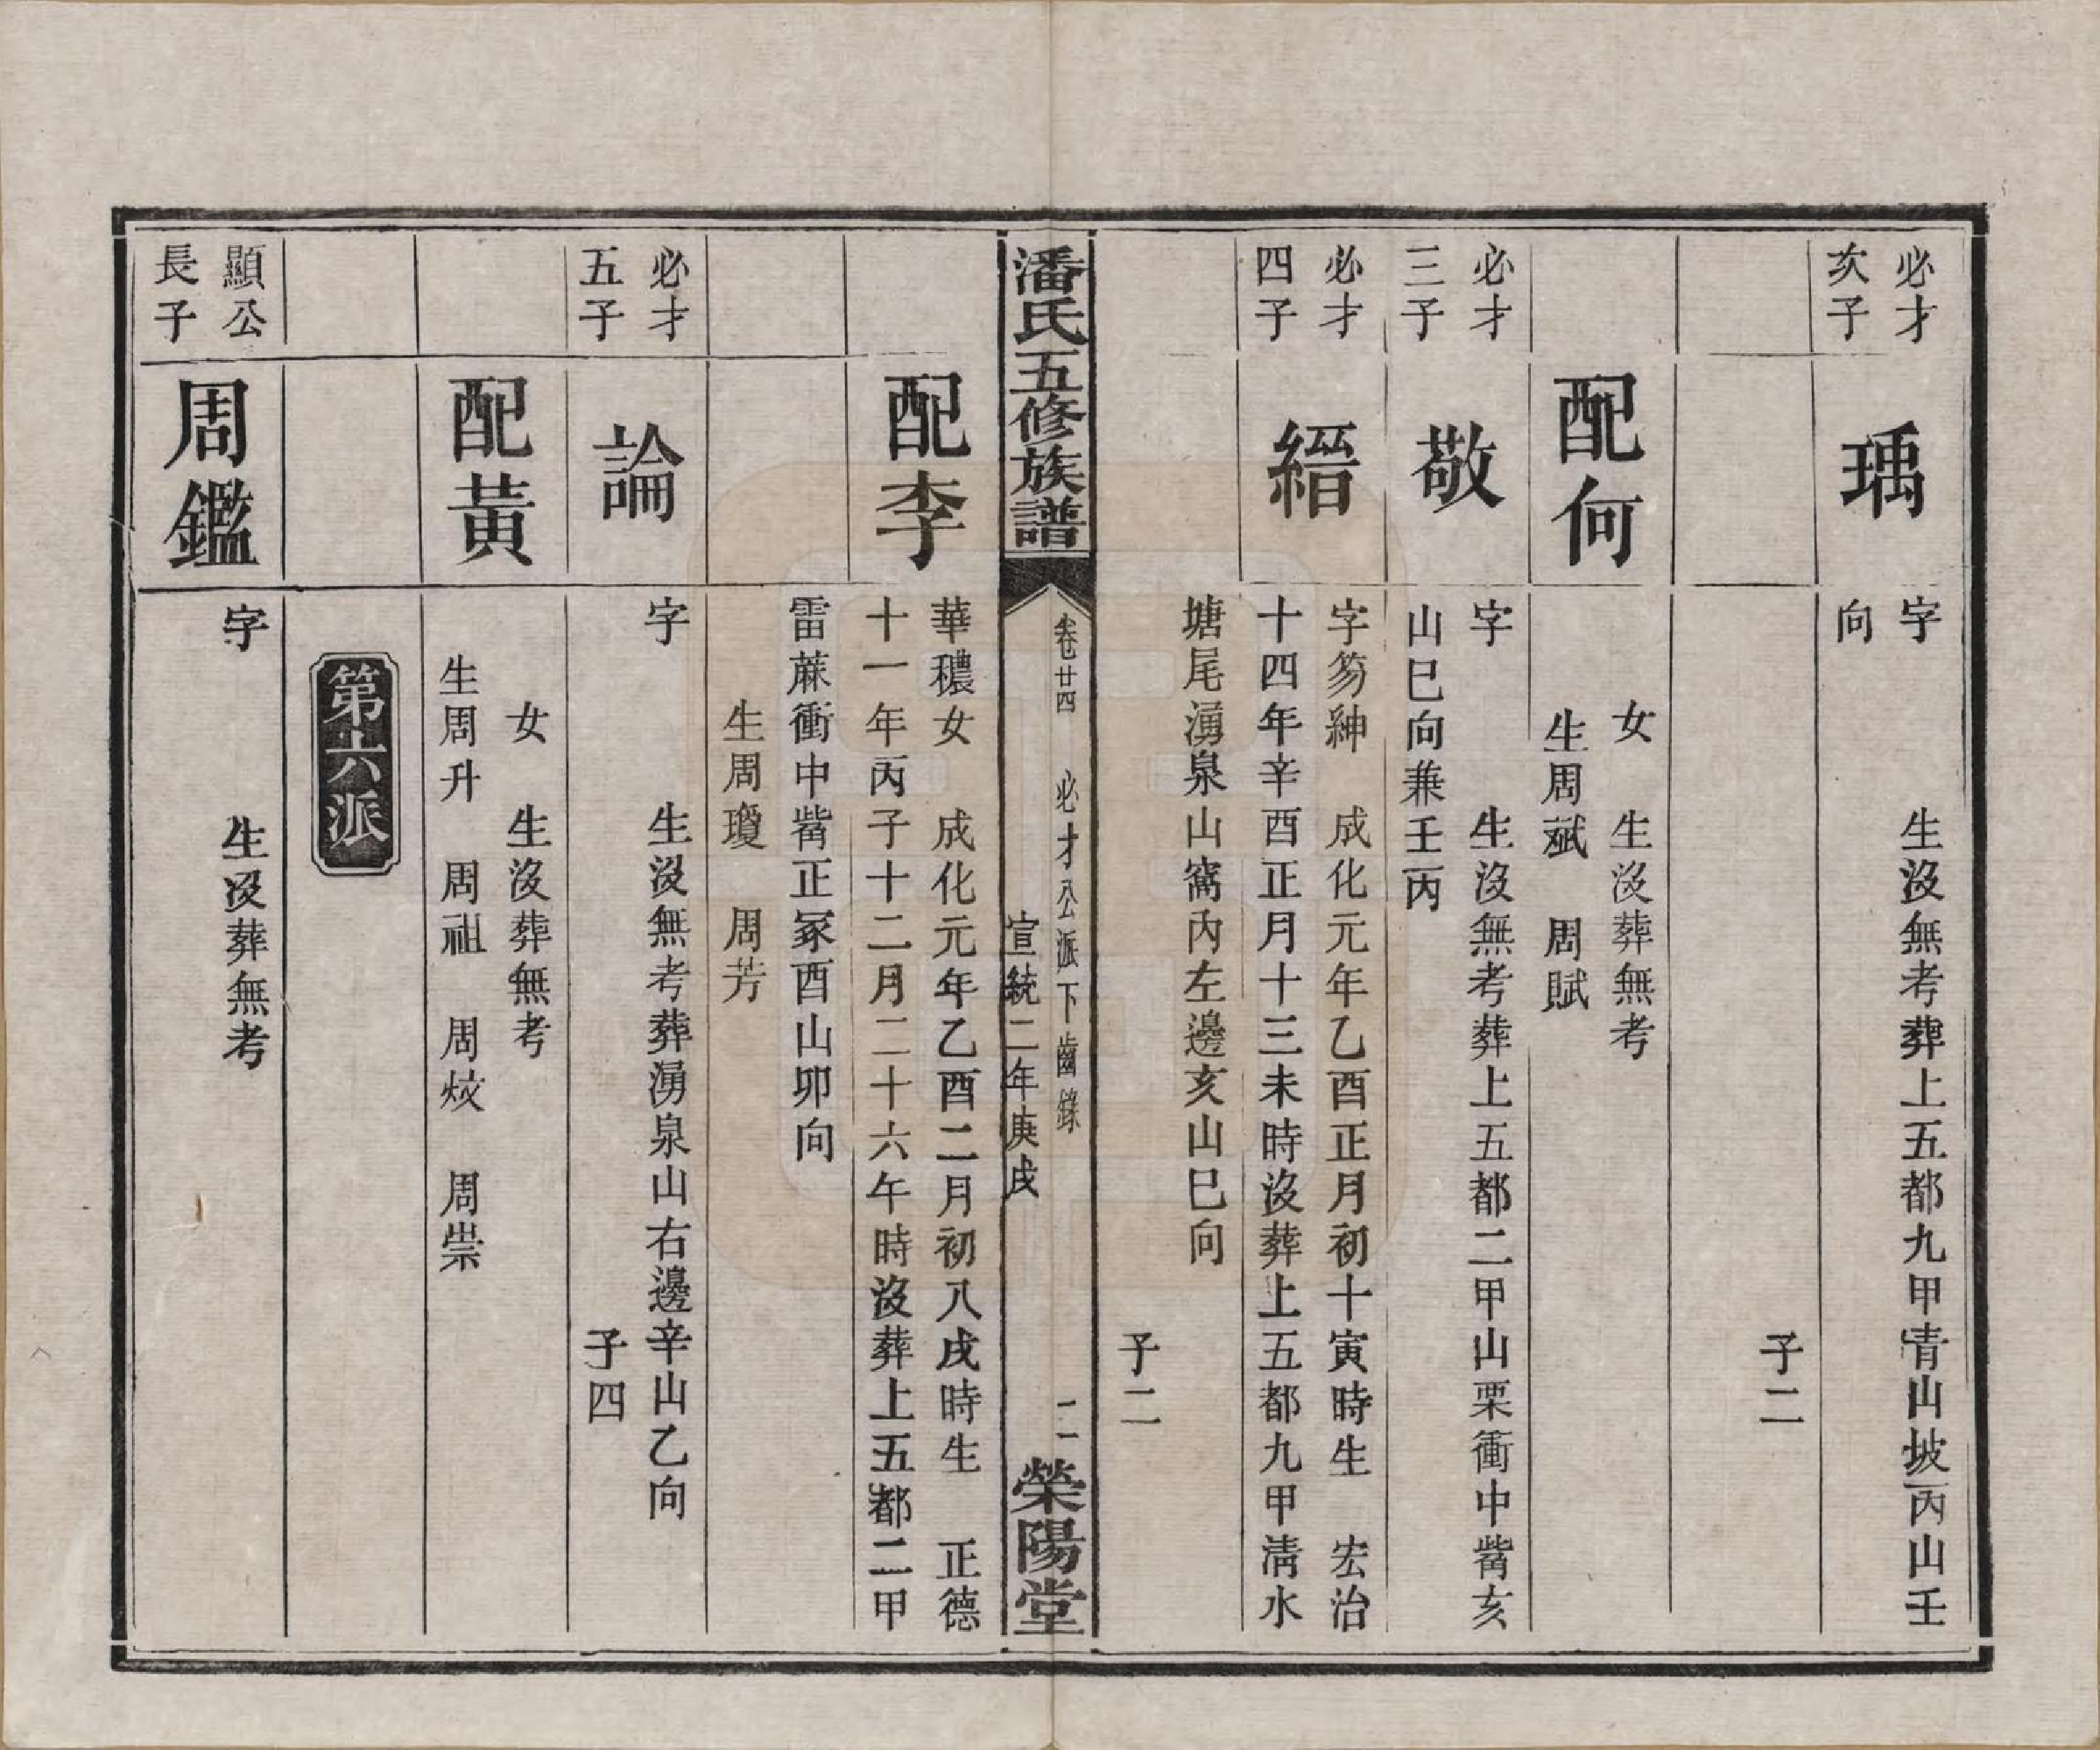 必才
次子
瑀
字　生沒無考葬上五都九甲青山坡丙山壬
向
子二
配何
女　生沒葬無考
生周斌　周賦
必才
三子
敬
字　生沒無考葬上五都二甲山栗衝中嘴亥
山巳向兼壬丙
必才
四子
縉
字笏紳　成化元年乙酉正月初十寅時生　宏治
十四年辛酉正月十三未時沒葬上五都九甲淸水
塘尾湧泉山窩內左邊亥山巳向
子二
潘氏五修族譜
卷廿四　必才公派下齒錄　二
宣統二年庚戌
榮陽堂
配李
華穠女　成化元年乙酉二月初八戌時生　正德
十一年丙子十二月二十六午時沒葬上五都二甲
雷蔴衝中嘴正冢酉山卯向
生周瓊　周芳
必才
五子
論
字　生沒無考葬湧泉山右邊辛山乙向
子四
配黃
女　生沒葬無考
生周升　周祖　周烄　周崇
第六派
顯公
長子
周鑑
字　生沒葬無考